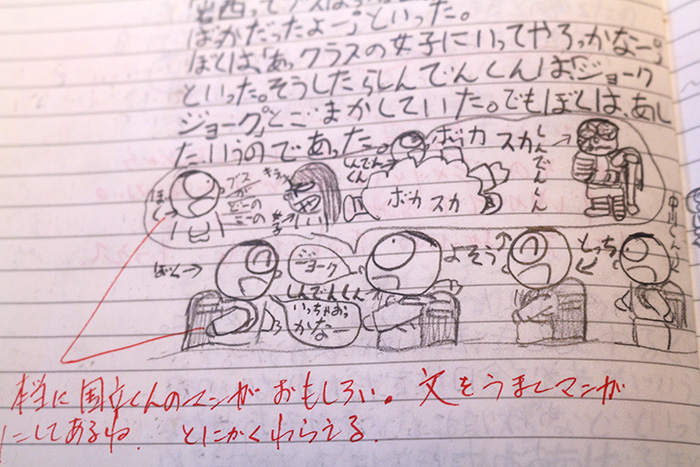 岩西ってブスは
ばかだったよー。」といった。
ぼくは、「あっクラスの女子にいってやろっかなー。」
といった。そうしたらしんでんくんは、「ジョーク
ジョーク」とごまかしていた。でもぼくは、あし
たいうのであった。
ぼく
ブスが
どーの
こーの
キラッ
女子
しんでんくん
ボカ スカ
ボカ スカ
しんでんくん
ぼく→
ジョーク
しんでんくん
いっちゃおっかなー
よそう
とっち
本当に国立くんのマンガおもしろい。文をうまくマンガ
にしてあるね。とにかくわらえる。